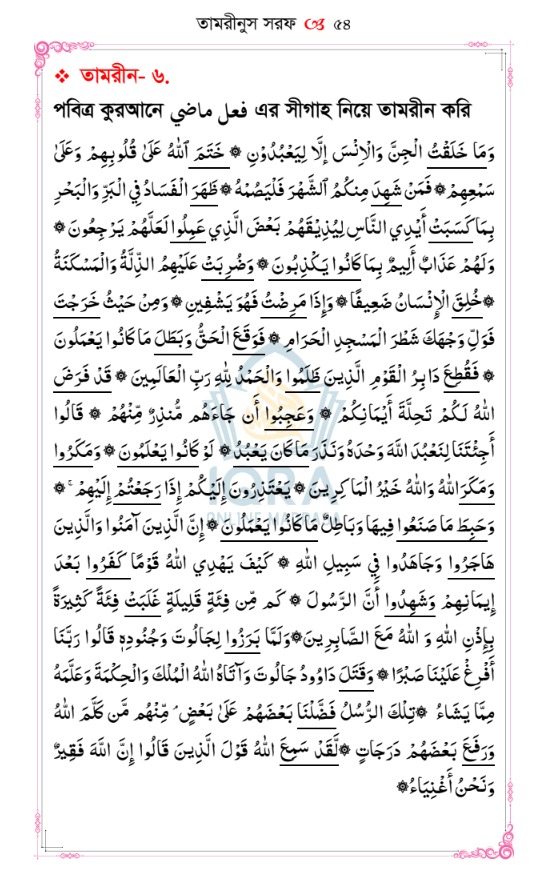 তামরীনুস সরফ ৫৪
❖ তামরীন- ৬.
পবিত্র কুরআনে فعل ماضي এর সীগাহ নিয়ে তামরীন করি
وَمَا خَلَقْتُ الْجِنَّ وَالْاِنْسَ اِلَّا لِيَعْبُدُوْنِ ۞ خَتَمَ اللهُ عَلىٰ قُلُوبِهِمْ وَعَلىٰ
سَمْعِهِمْ۞ فَمَنْ شَهِدَ مِنكُمُ الشَّهْرَ فَلْيَصُمْهُ۞ ظَهَرَ الْفَسَادُ فِي الْبَرِّ وَالْبَحْرِ
بِمَا كَسَبَتْ أَيْدِي النَّاسِ لِيُذِيْقَهُمْ بَعْضَ الَّذِي عَمِلُوا لَعَلَّهُمْ يَرْجِعُونَ۞
وَلَهُمْ عَذَابٌ أَلِيمٌ بِمَا كَانُوا يَكْذِبُونَ۞ وَضُرِبَتْ عَلَيْهِمُ الذِّلَّةُ وَالْمَسْكَنَةُ
۞خُلِقَ الْإِنْسَانُ ضَعِيفًا۞ وَإِذَا مَرِضْتُ فَهُوَ يَشْفِينِ۞ وَمِنْ حَيْثُ خَرَجْتَ
فَوَلِّ وَجْهَكَ شَطْرَ الْمَسْجِدِ الْحَرَامِ ۞ فَوَقَعَ الْحَقُّ وَبَطَلَ مَا كَانُوا يَعْمَلُونَ
۞ فَقُطِعَ دَابِرُ الْقَوْمِ الَّذِينَ ظَلَمُوا وَالْحَمْدُ لِلّٰهِ رَبِّ الْعَالَمِينَ ۞ قَدْ فَرَضَ
اللهُ لَكُمْ تَحِلَّةَ أَيْمَانِكُمْ ۞ وَعَجِبُوا أَن جَاءَهُم مُّنذِرٌ مِّنْهُمْ ۞ قَالُوا
أَجِئْتَنَا لِنَعْبُدَ اللَّهَ وَحْدَهُ وَنَذَرَ مَا كَانَ يَعْبُدُ ۞ لَوْ كَانُوا يَعْلَمُونَ۞ وَمَكَرُوا
وَمَكَرَ اللهُ وَاللهُ خَيْرُ الْمَاكِرِينَ۞ يَعْتَذِرُونَ إِلَيْكُمْ إِذَا رَجَعْتُمْ إِلَيْهِمْ ۞
وَحَبِطَ مَا صَنَعُوا فِيهَا وَبَاطِلٌ مَا كَانُوا يَعْمَلُونَ۞ إِنَّ الَّذِينَ آمَنُوا وَالَّذِينَ
هَاجَرُوا وَجَاهَدُوا فِي سَبِيلِ اللهِ ۞ كَيْفَ يَهْدِي اللهُ قَوْمًا كَفَرُوا بَعْدَ
إِيمَانِهِمْ وَشَهِدُوا أَنَّ الرَّسُولَ ۞ كَم مِّن فِئَةٍ قَلِيلَةٍ غَلَبَتْ فِئَةً كَثِيرَةً
بِإِذْنِ اللهِ وَ اللهُ مَعَ الصَّابِرِينَ۞وَلَمَّا بَرَزُوا لِجَالُوتَ وَجُنُودِهٖ قَالُوا رَبَّنَا
أَفْرِغْ عَلَيْنَا صَبْرًا۞ وَقَتَلَ دَاوُودُ جَالُوتَ وَآتَاهُ اللهُ الْمُلْكَ وَالْحِكْمَةَ وَعَلَّمَهُ
مِمَّا يَشَاءُ ۞تِلْكَ الرُّسُلُ فَضَّلْنَا بَعْضَهُمْ عَلىٰ بَعْضٍ ۘ مِّنْهُم مَّن كَلَّمَ اللهُ
وَرَفَعَ بَعْضَهُمْ دَرَجَاتٍ ۞لَّقَدْ سَمِعَ اللهُ قَوْلَ الَّذِينَ قَالُوا إِنَّ اللَّهَ فَقِيرٌ
وَنَحْنُ أَغْنِيَاءُ۞
IQRA
ONLINE MADRASA